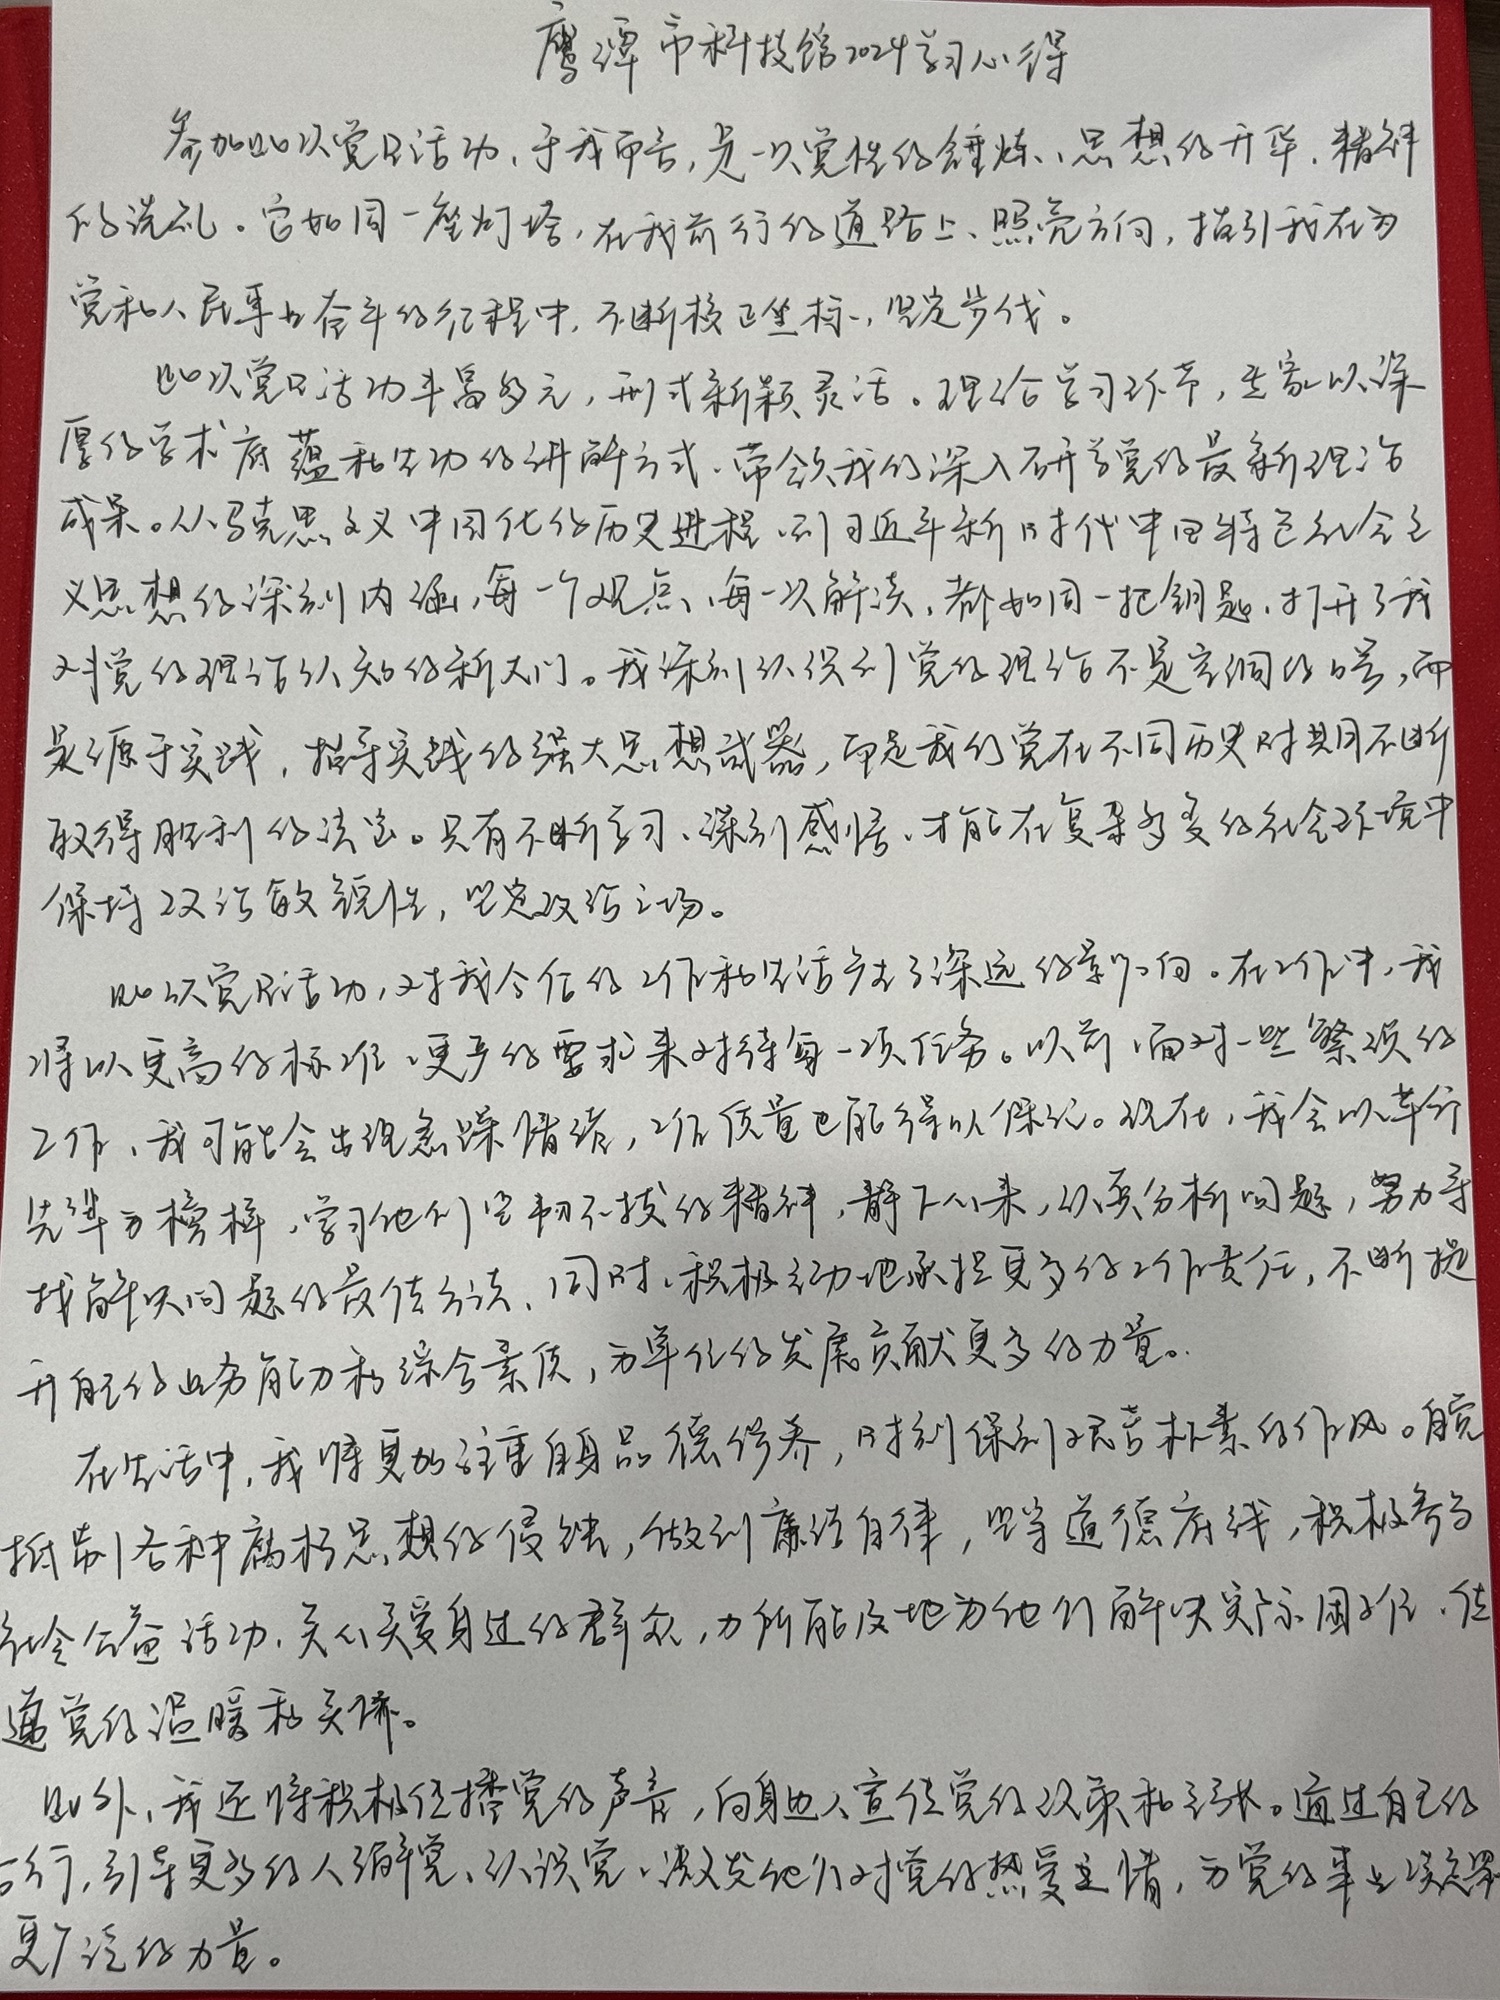 鹰潭市科技馆2024学习心得
参加此次党日活动、于我而言，是一次党性的锤炼、思想的升华、精神
的洗礼。它如同一座灯塔，在我前行的道路上、照亮方向，指引我在为
党和人民事业奋斗的征程中，不断校正坐标，坚定步伐。
此次党日活动丰富多元，形式新颖灵活。理论学习环节，专家以深
厚的学术底蕴和生动的讲解方式、带领我们深入研学党的最新理论
成果。从马克思主义中国化的历史进程、到习近平新时代中国特色社会主
义思想的深刻内涵，每一个观点、每一次解读，都如同一把钥匙，打开了我
对党的理论认知的新大门。我深刻认识到党的理论不是空洞的口号，而
是源于实践，指导实践的强大思想武器，而是我们党在不同历史时期不断
取得胜利的法宝。只有不断学习、深刻感悟、才能在复杂多变的社会环境中
保持政治敏锐性，坚定政治立场。
此次党日活动，对我今后的工作和生活产生了深远的影响。在工作中，我
将以更高的标准、更严的要求来对待每一项任务。以前，面对一些繁琐的
工作、我可能会出现急躁情绪，工作质量也能得以保证。现在，我会以革命
先辈为榜样，学习他们坚韧不拔的精神，静下心来，认真分析问题，努力寻
找解决问题的最佳方法、同时、积极主动地承担更多的工作责任，不断提
升自己的业务能力和综合素质，为单位的发展贡献更多的力量。
在生活中，我将更加注重自身品德修养，时刻保到艰苦朴素的作风。自觉
抵制各种腐朽思想的侵蚀，做到廉洁自律，坚守道德底线，积极参与
社会公益活动、关心关爱身边的群众，力所能及地为他们解决实际困难、传
递党的温暖和关怀。
此外，我还将积极传播党的声音，向身边人宣传党的政策和主张。通过自己的
言行，引导更多的人了解党、认识党、激发他们对党的热爱之情，为党的事业凝聚
更广泛的力量。